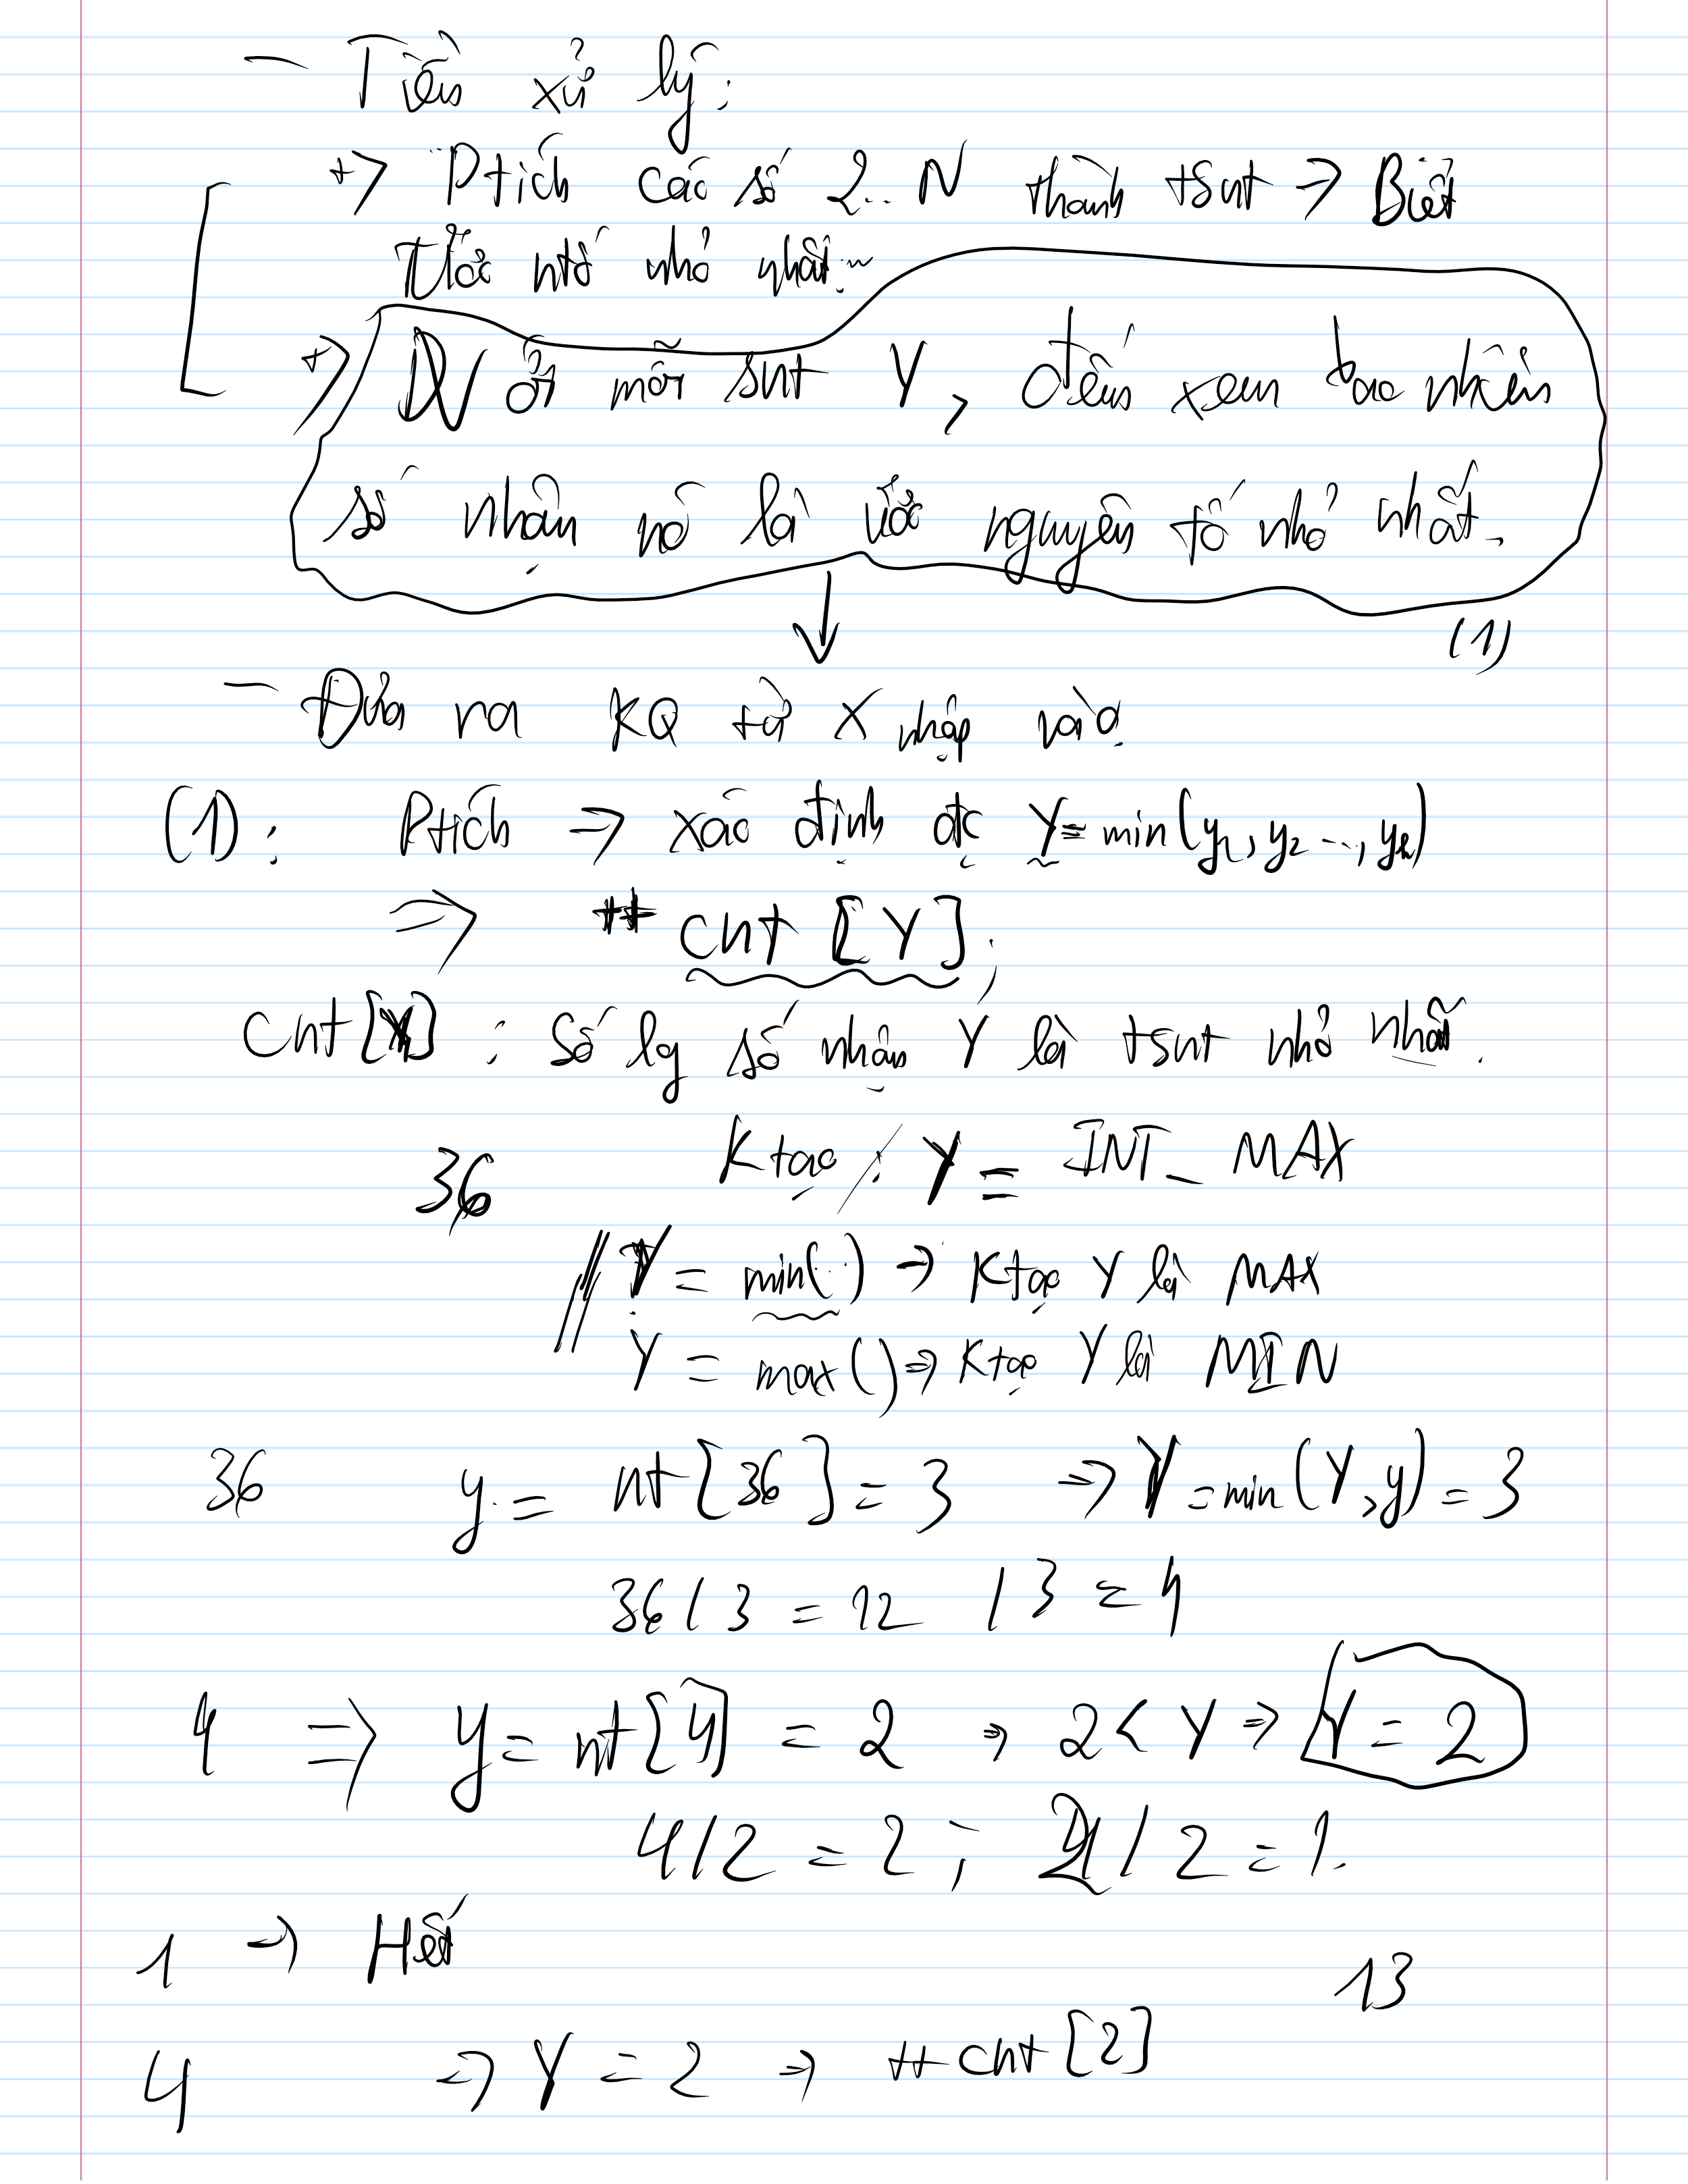 - Tiền xử lý:
+> Ptích các số 2..N thành tsnt → Biết
Ước ntố nhỏ nhất
+> Với mỗi snt Y, đếm xem bao nhiêu
số nhận nó là ước nguyên tố nhỏ nhất.
(1)
- Đưa ra KQ từ X nhập vào
(1): Ptích ⇒ xác định đc Y = min(y1, y2 ..., yk)
⇒ ++cnt[Y];
Cnt[Y] : Số lg số nhận Y là tsnt nhỏ nhất.
36 Ktạo : Y = INT_MAX
// Y = min(..) → Ktạo Y là MAX
Y = max() ⇒ Ktạo Y là MIN
36 y = nt[36] = 3 ⇒ Y = min(Y, y) = 3
36 / 3 = 12 / 3 = 4
4 ⇒ y = nt[4] = 2 ⇒ 2 < Y ⇒ Y = 2
4/2 = 2; 2/2 = 1.
1 → Hết
13
4 ⇒ Y = 2 → ++cnt[2]